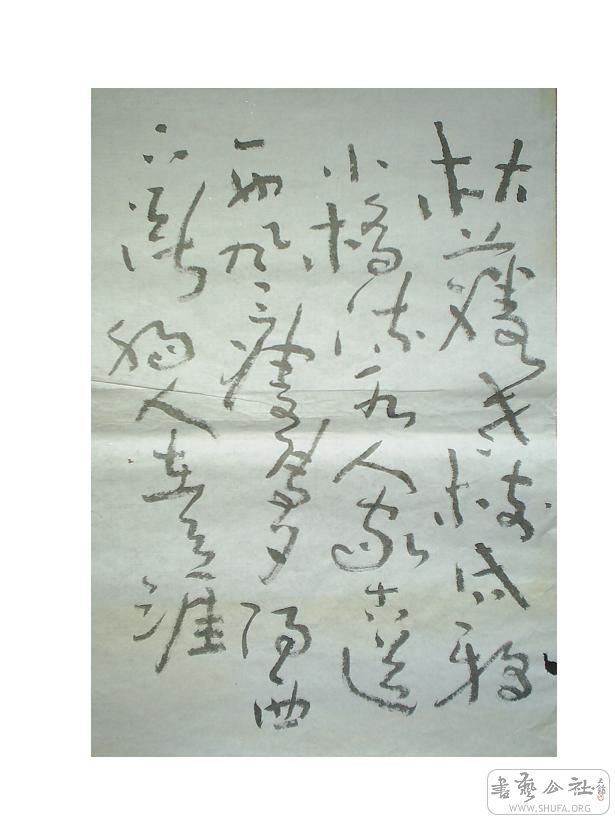 枯藤老樹昏鴉
小橋流水人家古道
西風瘦馬夕陽西
下斷腸人在天涯
書藝公社
WWW.SHUFA.ORG